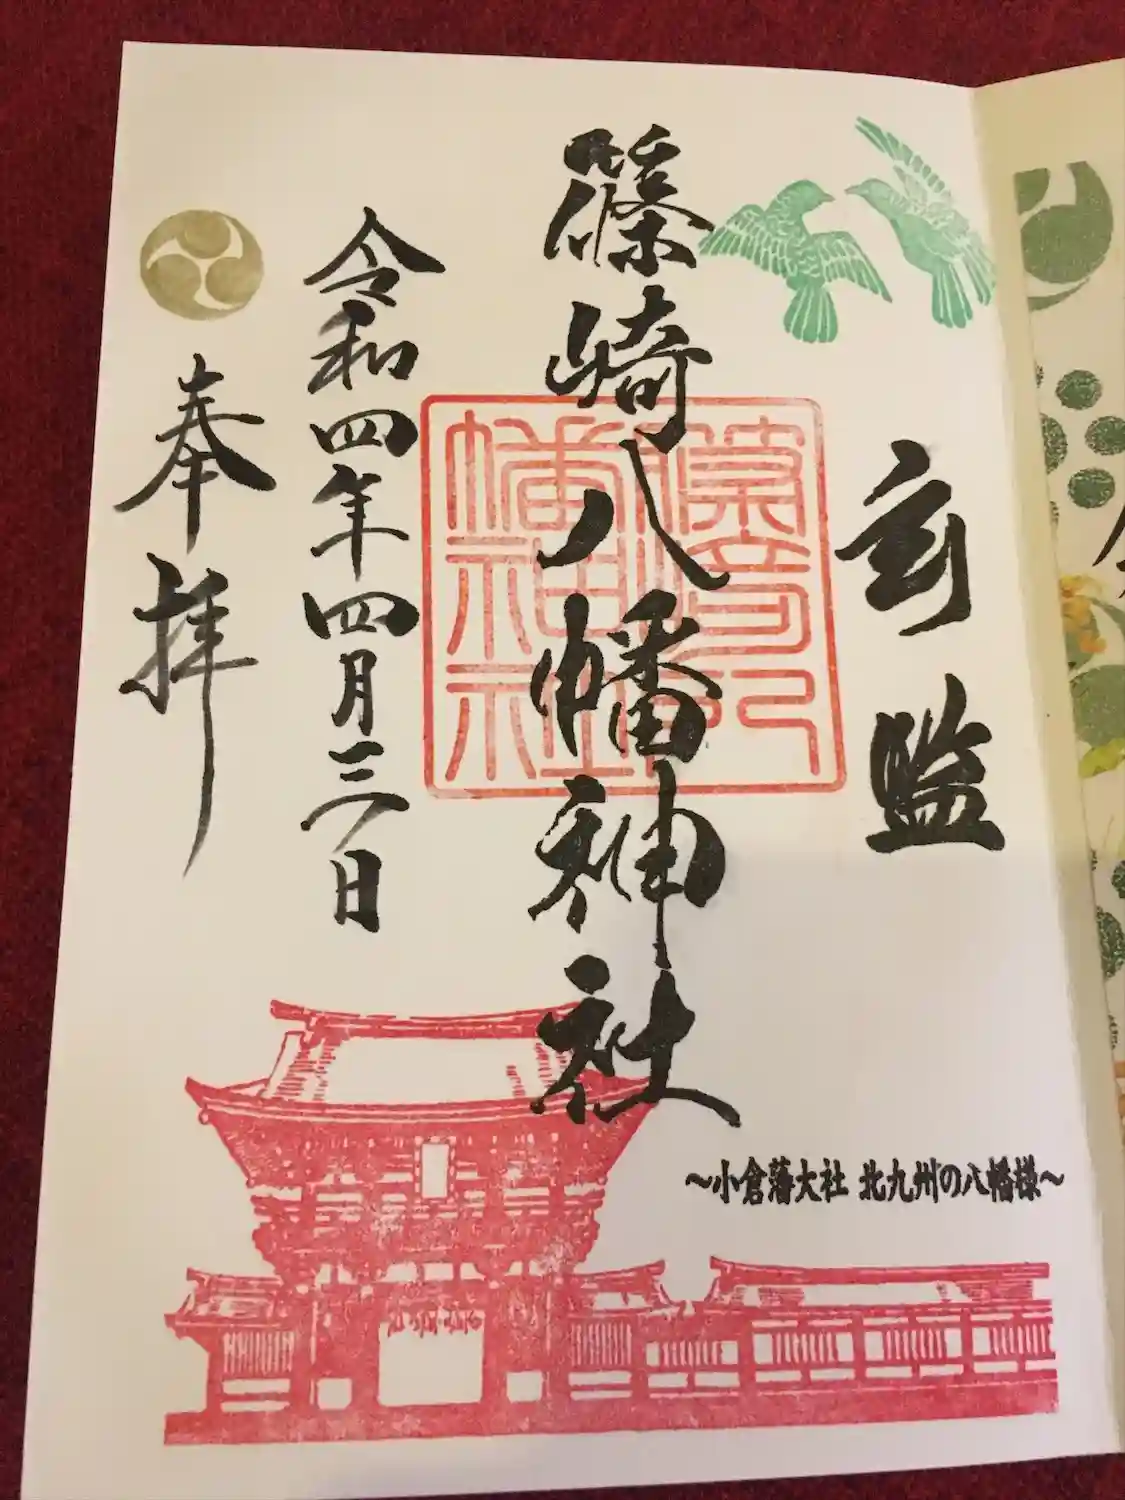 篠崎八幡神社
令和四年四月三日
奉拝
篠崎八
幡神社
～小倉藩大社 北九州の八幡様～